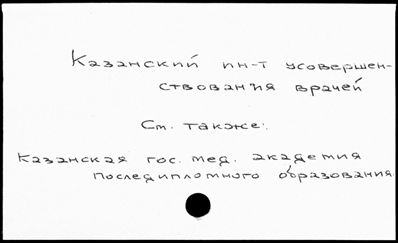 Казанский ин-т усовершен-
ствования врачей
См. также:
Казанская гос. мед. академия
последипломного образования.